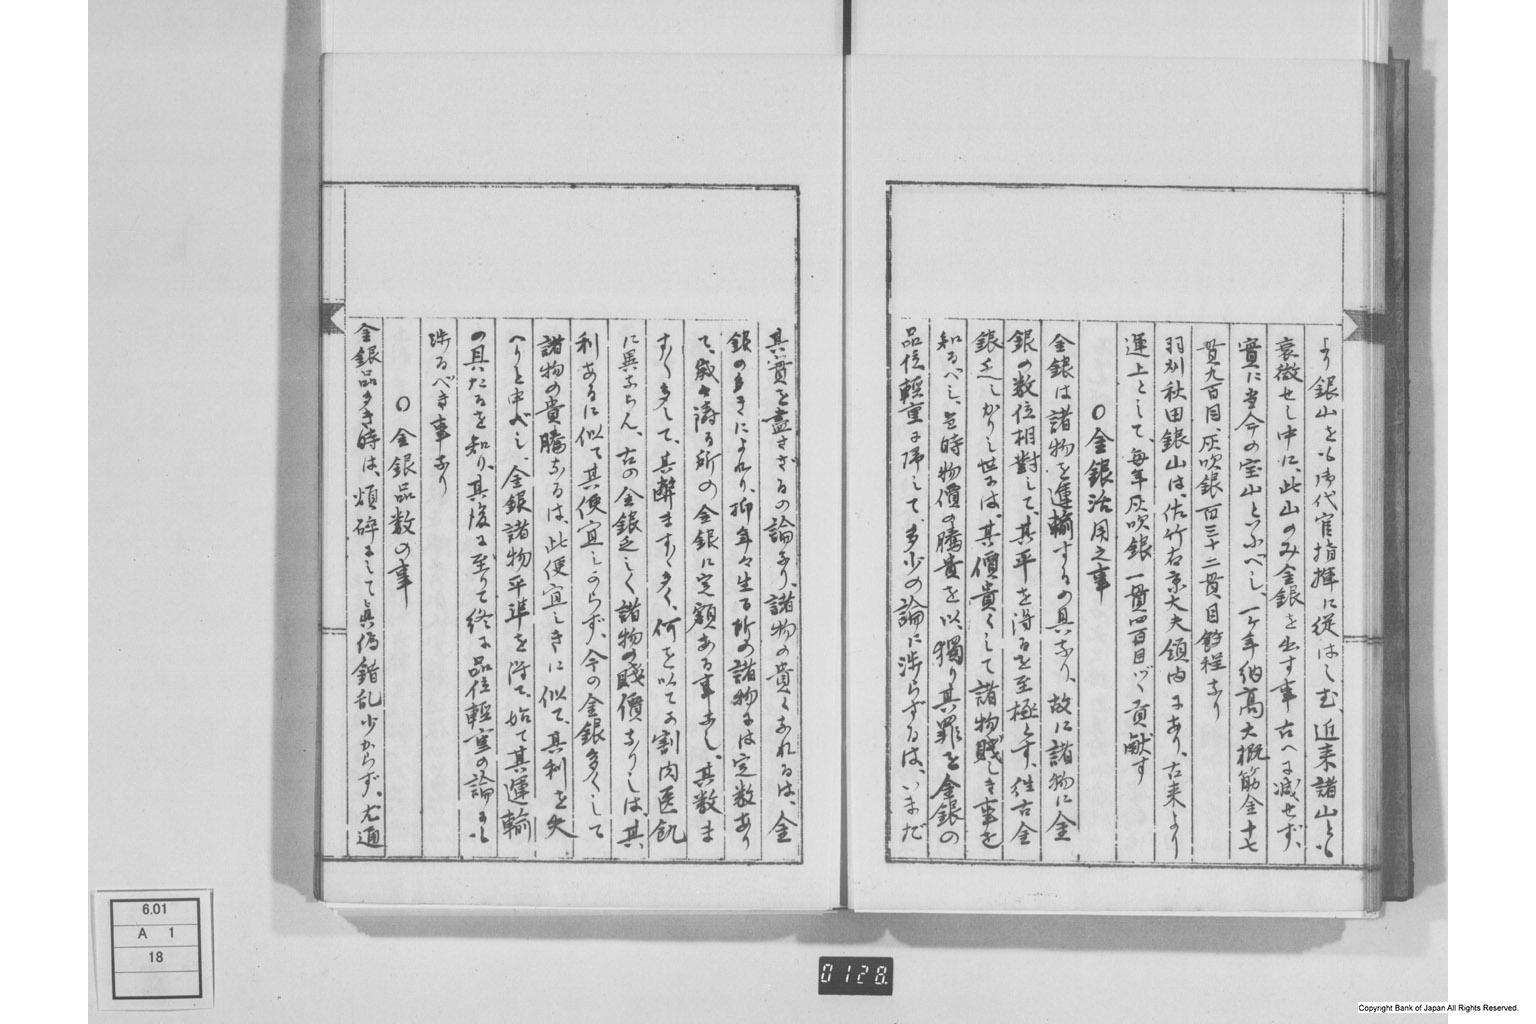 より銀山をも御代官指揮に従はしむ、近来諸山とも
衰微せし中に、此山のみ金銀を出す事古へに減せず、
實に当今の宝山といふべし、一ケ年納高大概筋金十七
貫九百目、灰吹銀百三十二貫目餘程なり
羽刕秋田銀山は、佐竹右京大夫領内にあり、古来より
運上として、毎年灰吹銀一貫四百目づゝ貢献す
〇金銀治用之事
金銀は諸物を運輸するの具なり、故に諸物に金
銀の数位相對して、其平を得るを至極とす、往古金
銀乏しかりし世には、其價貴くして諸物賤しき事を
知るべし、当時物價の騰貴を以、獨り其罪を金銀の
品位輕重に帰して、多少の論に渉らざるは、いまだ
其實を盡さざるの論なり、諸物の貴くなれるは、金
銀の多きによれり、抑年々生る所の諸物には定数あり
て、歳々鋳る所の金銀に定額ある事なし、其数ま
すく多して、其弊ますく多く、何を以てか割肉医飢
に異ならん、古の金銀乏しく諸物の賤價なりしは、其
利あるに似て其便宜しからず、今の金銀多くして
諸物の貴騰なるは、此便宜しきに似て、其利を失
へりと申べし、金銀諸物平準を得て、始て其運輸
の具たるを知り、其後に至りて終に品位輕重の論にも
渉るべき事なり
〇金銀品数の事
金銀品多き時は、煩碎にして眞偽錯乱少からず、尤通
6.01
A 1
18
0128.
Copyright Bank of Japan All Rights Reserved.